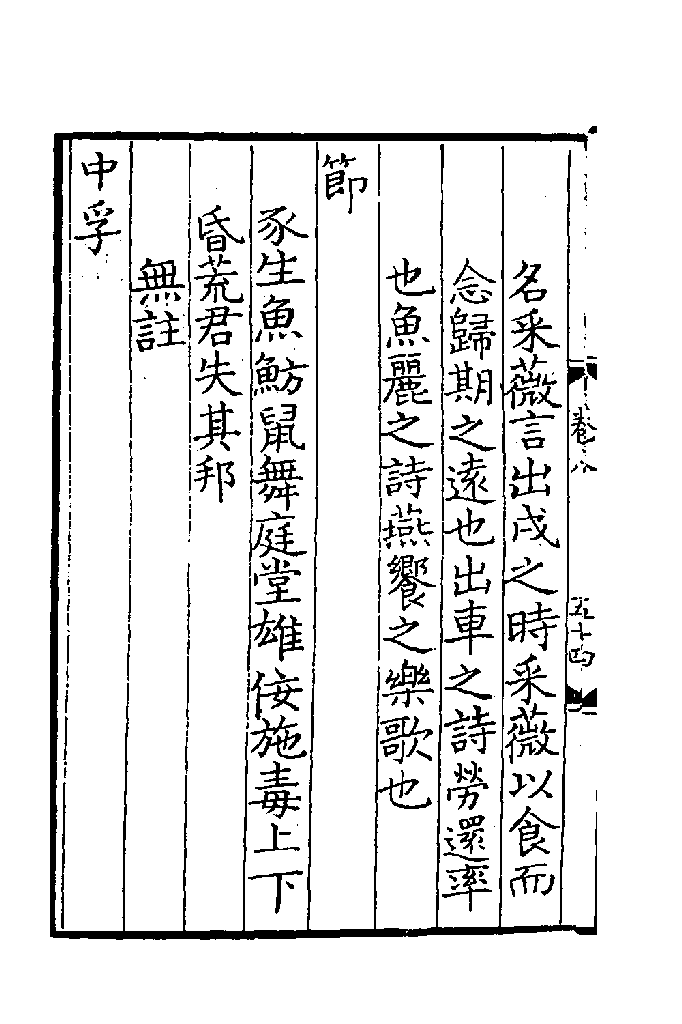 卷八
五十四
名采薇言出戍之時采薇以食而
念歸期之遠也出車之詩勞還率
也魚麗之詩燕饗之樂歌也
節
豕生魚魴鼠舞庭堂雄佞施毒上下
昏荒君失其邦
無註
中孚